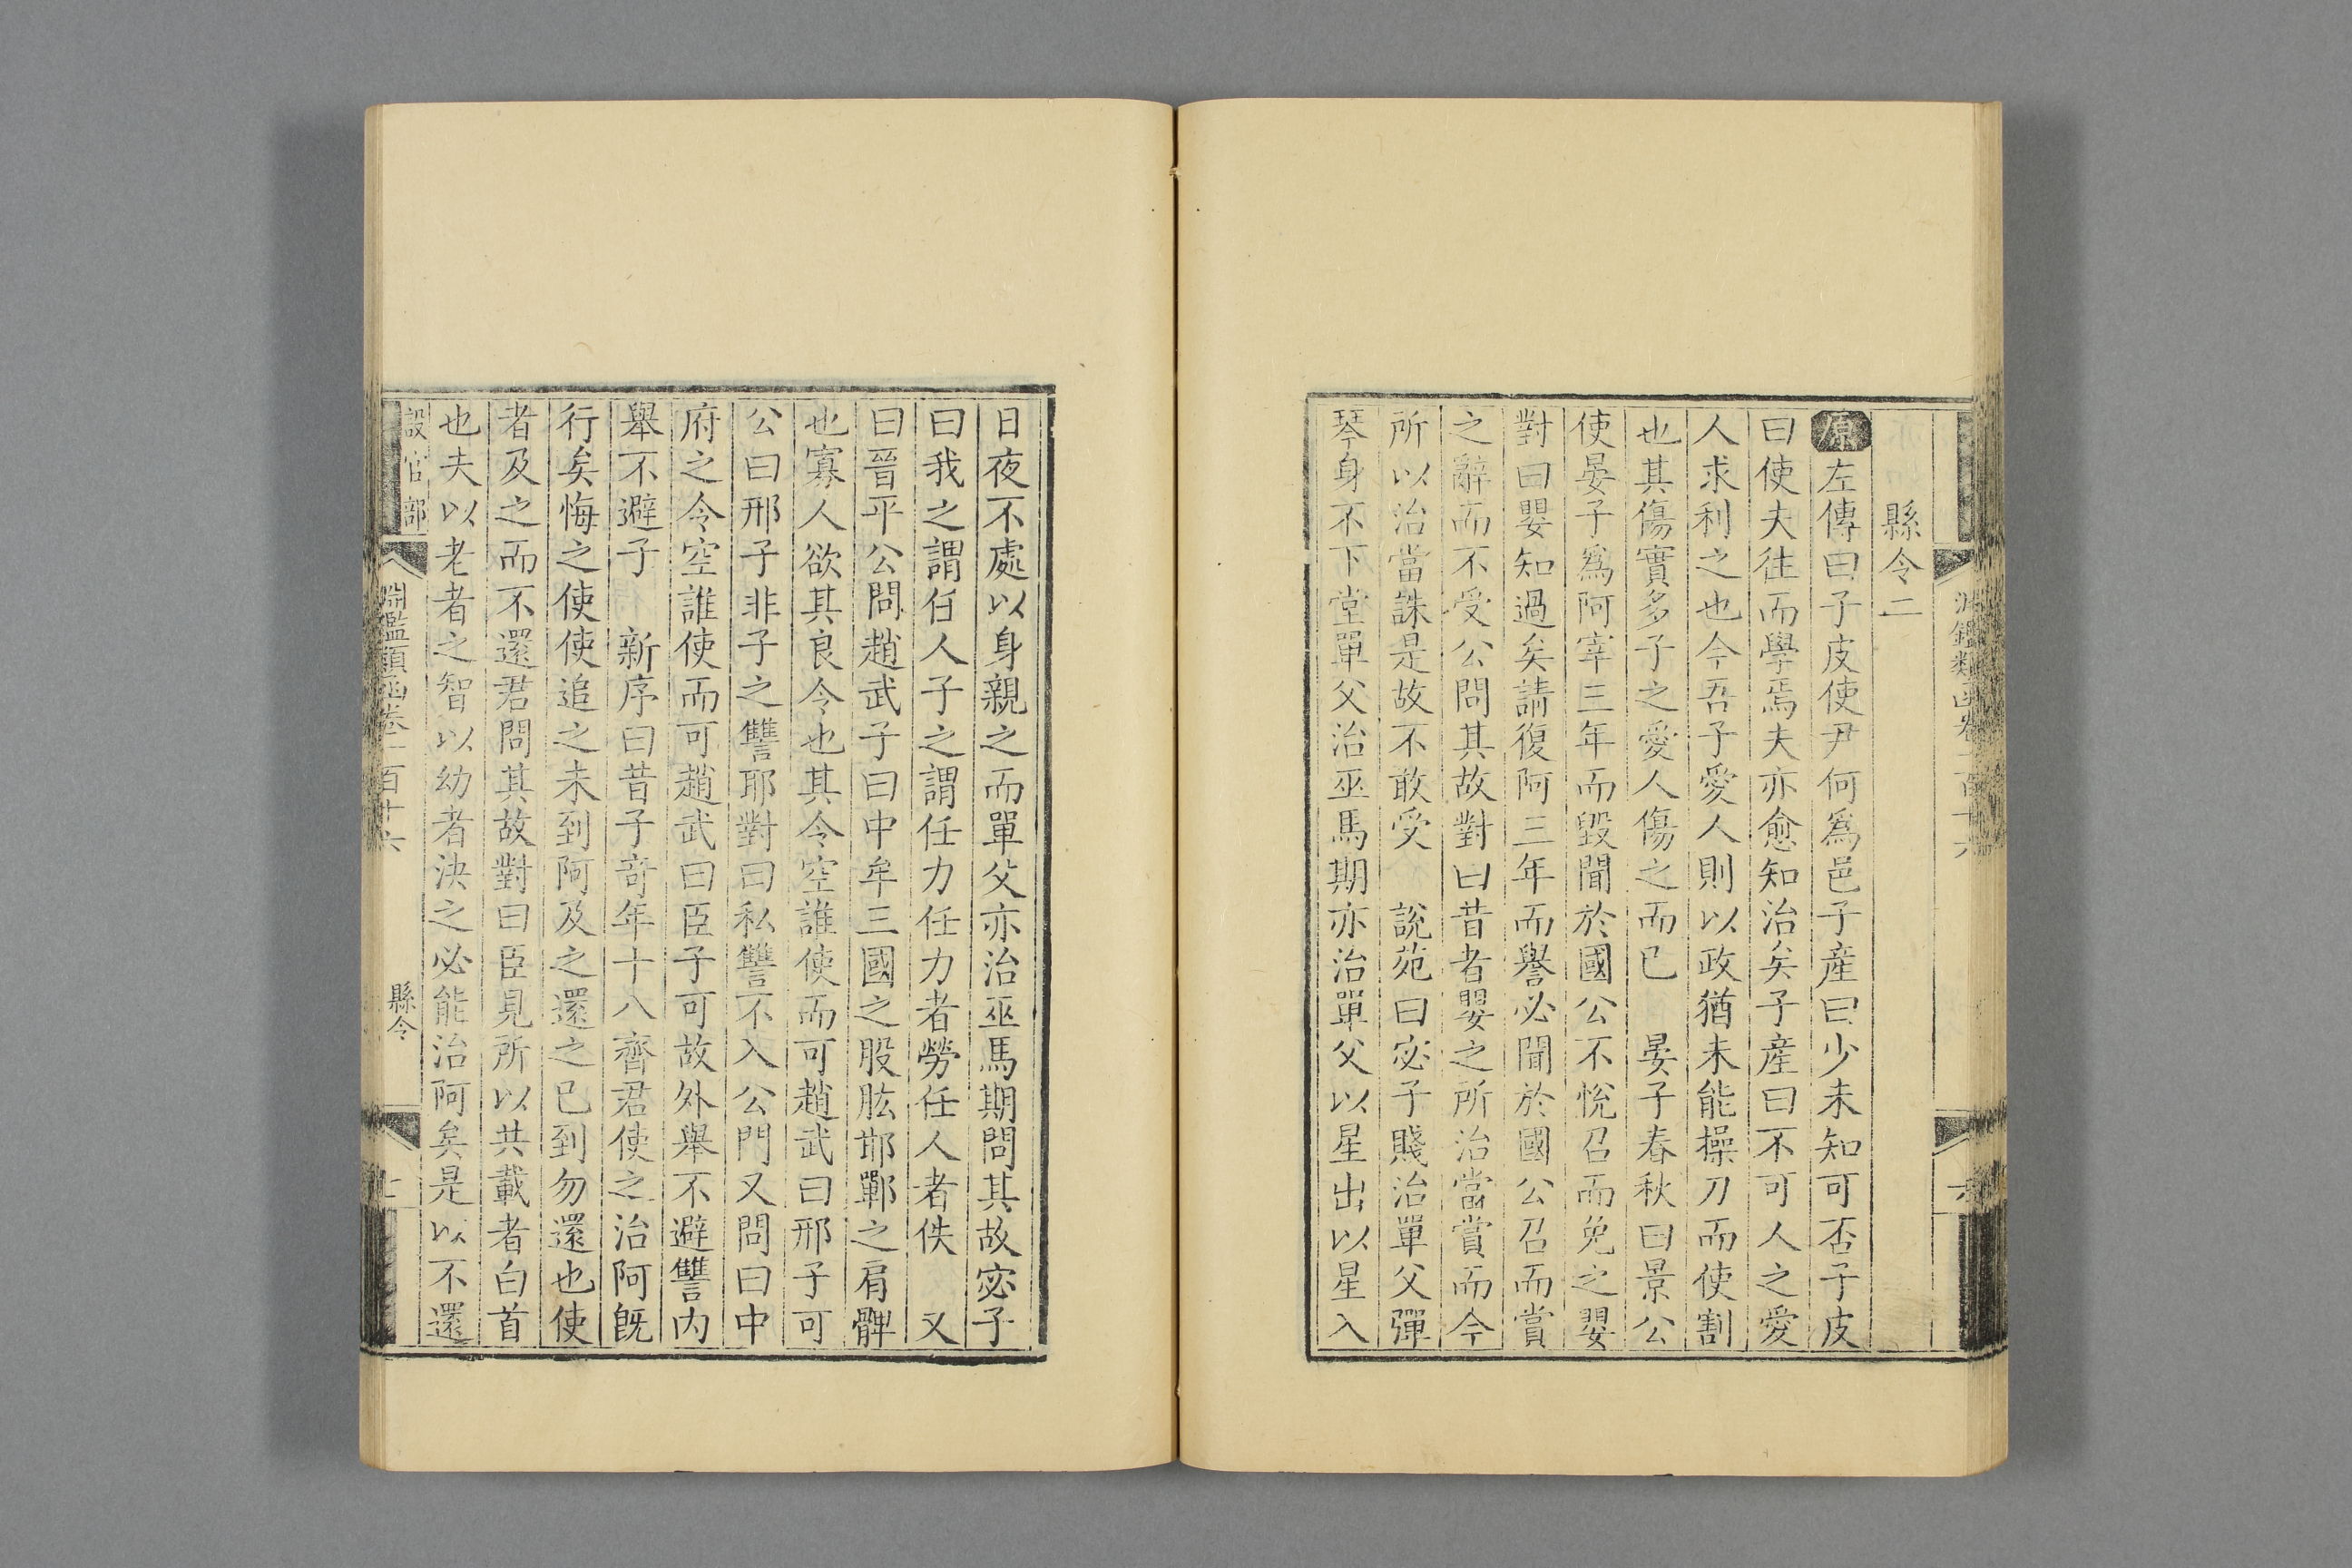 縣令二
原左傳曰子皮使尹何爲邑子産曰少未知可否子皮
曰使夫往而學焉夫亦愈知治矣子産曰不可人之愛
人求利之也今吾子愛人則以政猶未能操刀而使割
也其傷實多子之愛人傷之而已 晏子春秋曰景公
使晏子爲阿宰三年而毀聞於國公不悅召而免之嬰
對曰嬰知過矣請復阿三年而譽必聞於國公召而賞
之辭而不受公問其故對曰昔者嬰之所治當賞而今
所以治當誅是故不敢受 說苑曰宓子賤治單父彈
琴身不下堂單父治巫馬期亦治單父以星出以星入
日夜不處以身親之而單父亦治巫馬期問其故宓子
曰我之謂任人子之謂任力任力者勞任人者佚 又
曰晉平公問趙武子曰中牟三國之股肱邯鄲之肩髀
也寡人欲其良令也其令空誰使而可趙武曰邢子可
公曰邢子非子之讐耶對曰私讐不入公門又問曰中
府之令空誰使而可趙武曰臣子可故外舉不避讐內
舉不避子 新序曰昔子奇年十八齊君使之治阿旣
行矣悔之使使追之未到阿及之還之已到勿還也使
者及之而不還君問其故對曰臣見所以共載者白首
也夫以老者之智以幼者決之必能治阿矣是以不還
設官部 淵鑑類函卷一百十六 縣令 七
淵鑑類函卷一百十六 六